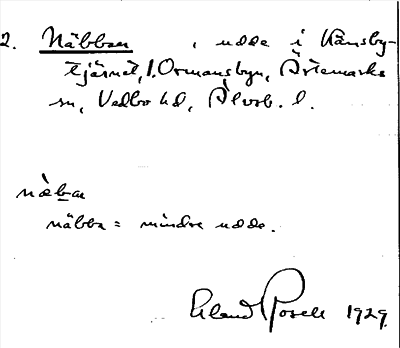 2. Näbban , udde i Kånsby-
tjärnet, l. Ormansbyn, Ärtemarks
sn, Vedbo hd, Älvsb. l.
næban
näbba = mindre udde.
Erland Rosell 1929.